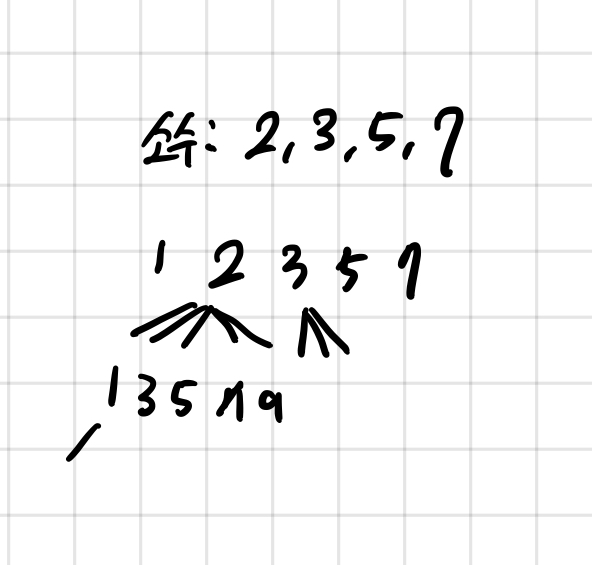 소수: 2, 3, 5, 7
1 2 3 5 7
1 3 5 7 9